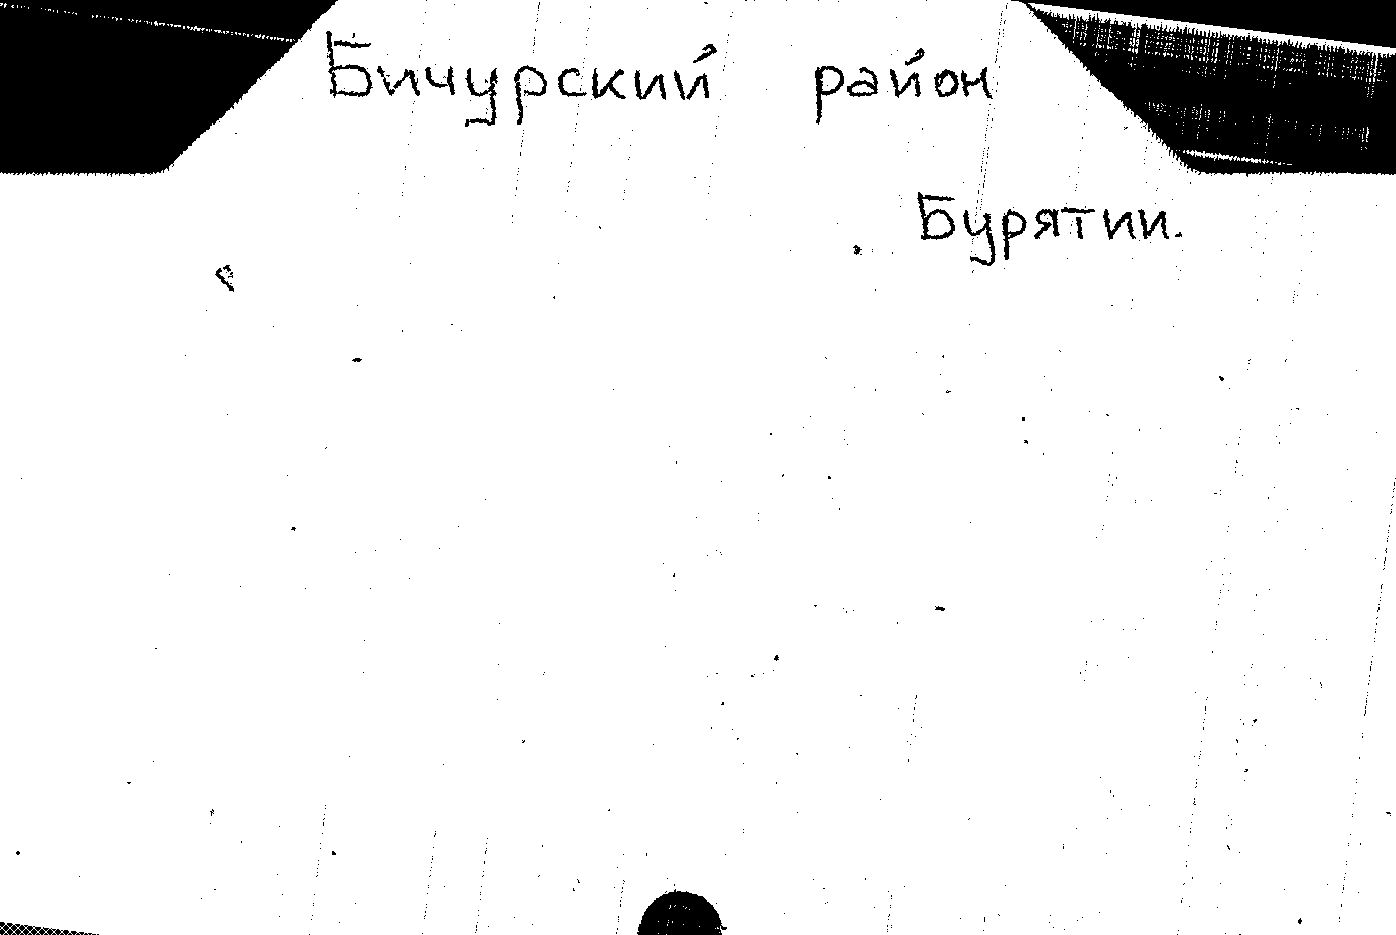 Бичурский район
Бурятии.